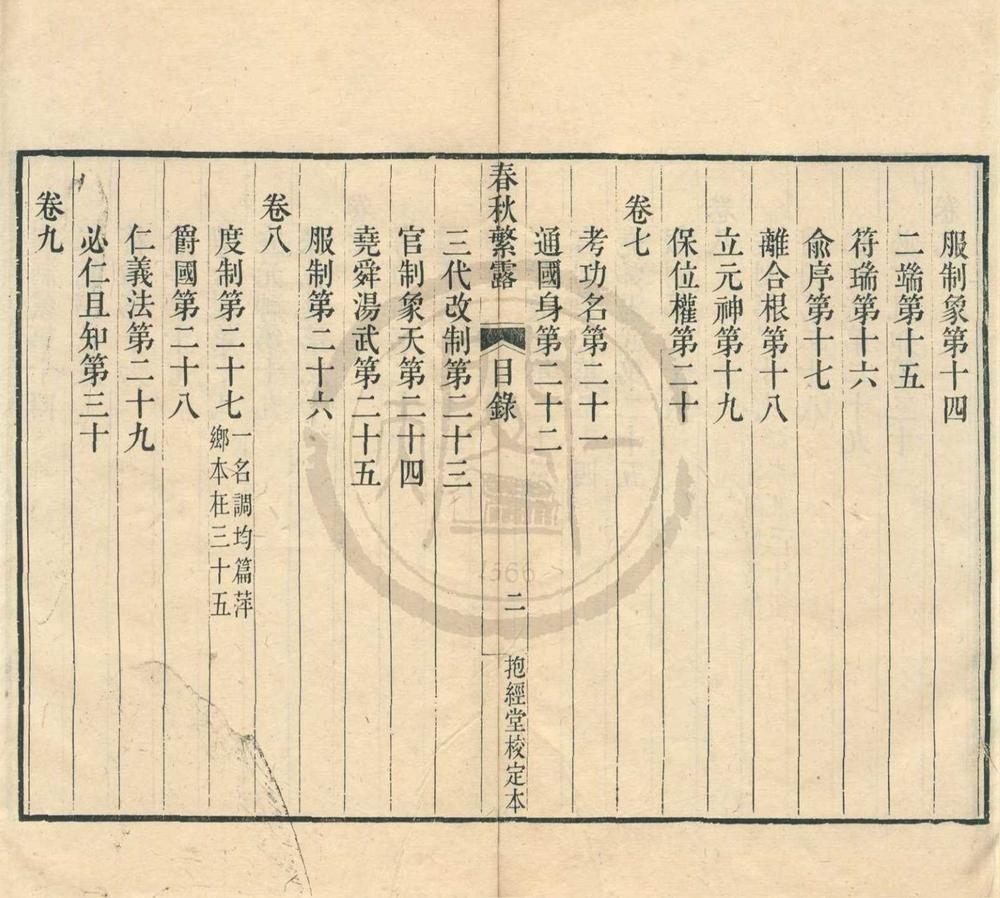 服制象第十四
二端第十五
符瑞第十六
俞序第十七
離合根第十八
立元神第十九
保位權第二十
卷七
考功名第二十一
通國身第二十二
春秋繁露 目錄 二 抱經堂校定本
三代改制第二十三
官制象天第二十四
堯舜湯武第二十五
服制第二十六
卷八
度制第二十七 一名調均篇萍
鄉本在三十五
爵國第二十八
仁義法第二十九
必仁且知第三十
卷九
1566